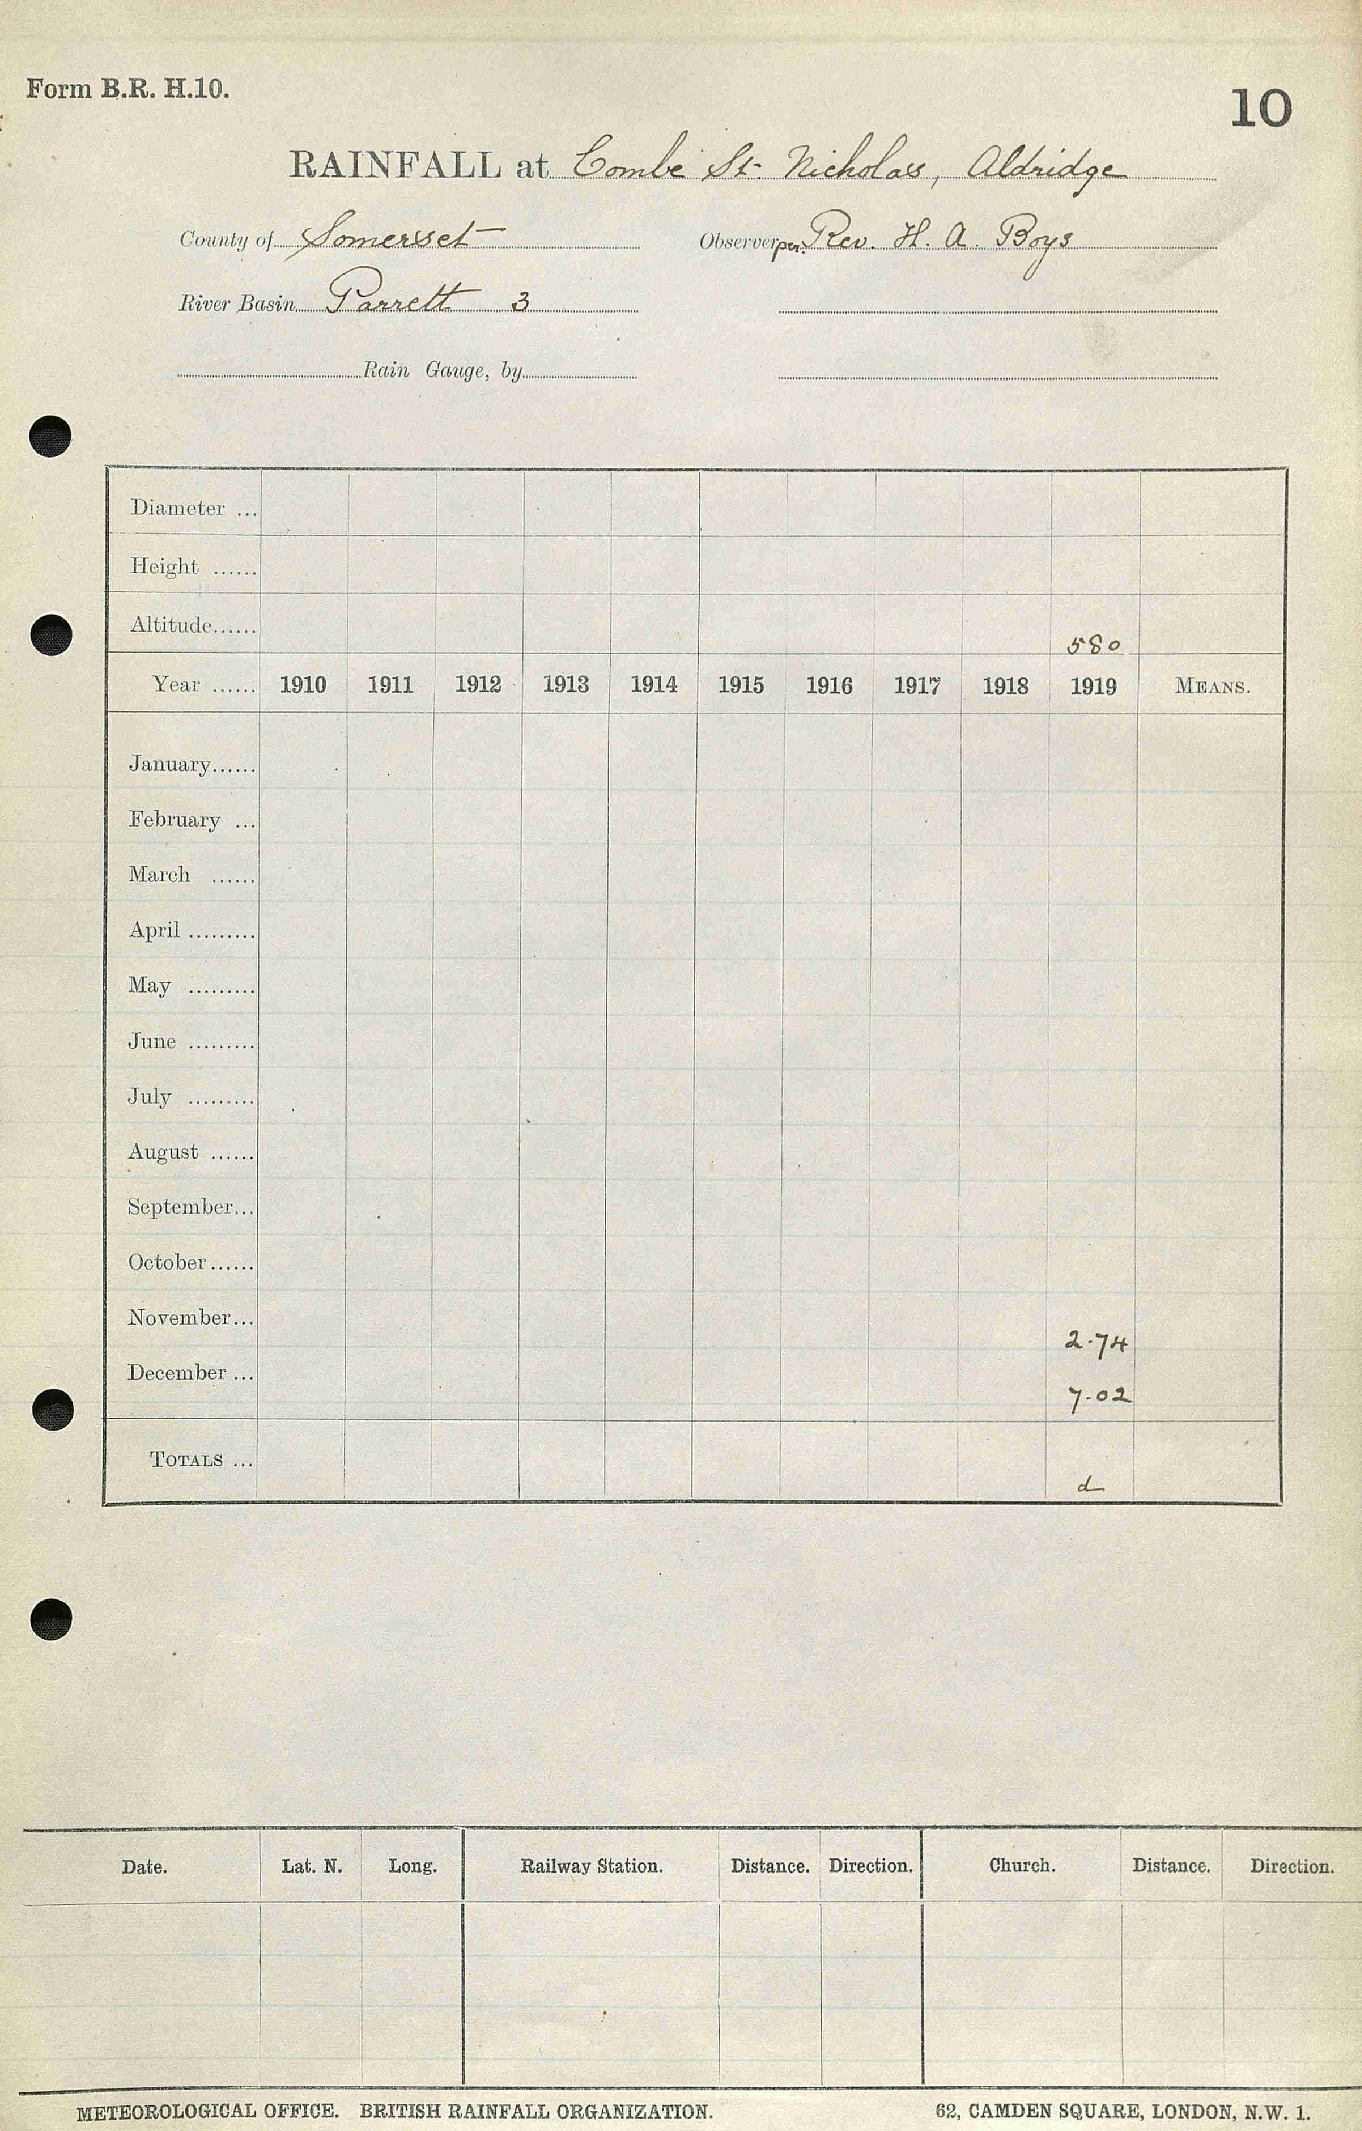 Form B.R. H.10.
10
RAINFALL at Combe St. Nicholas, Aldridge
County of Somerset Observer per. Rev. H. A. Boys
River Basin Parrett 3
Rain Gauge, by
Diameter ...
Height ......
Altitude...... 580
Year ...... 1910 1911 1912 1913 1914 1915 1916 1917 1918 1919 MEANS.
January......
February ...
March ......
April .........
May .........
June .........
July .........
August ......
September...
October......
November... 2.74
December ... 7.02
TOTALS ... d
Date. Lat. N. Long. Railway Station. Distance. Direction. Church. Distance. Direction.
METEOROLOGICAL OFFICE. BRITISH RAINFALL ORGANIZATION. 62, CAMDEN SQUARE, LONDON, N.W. 1.